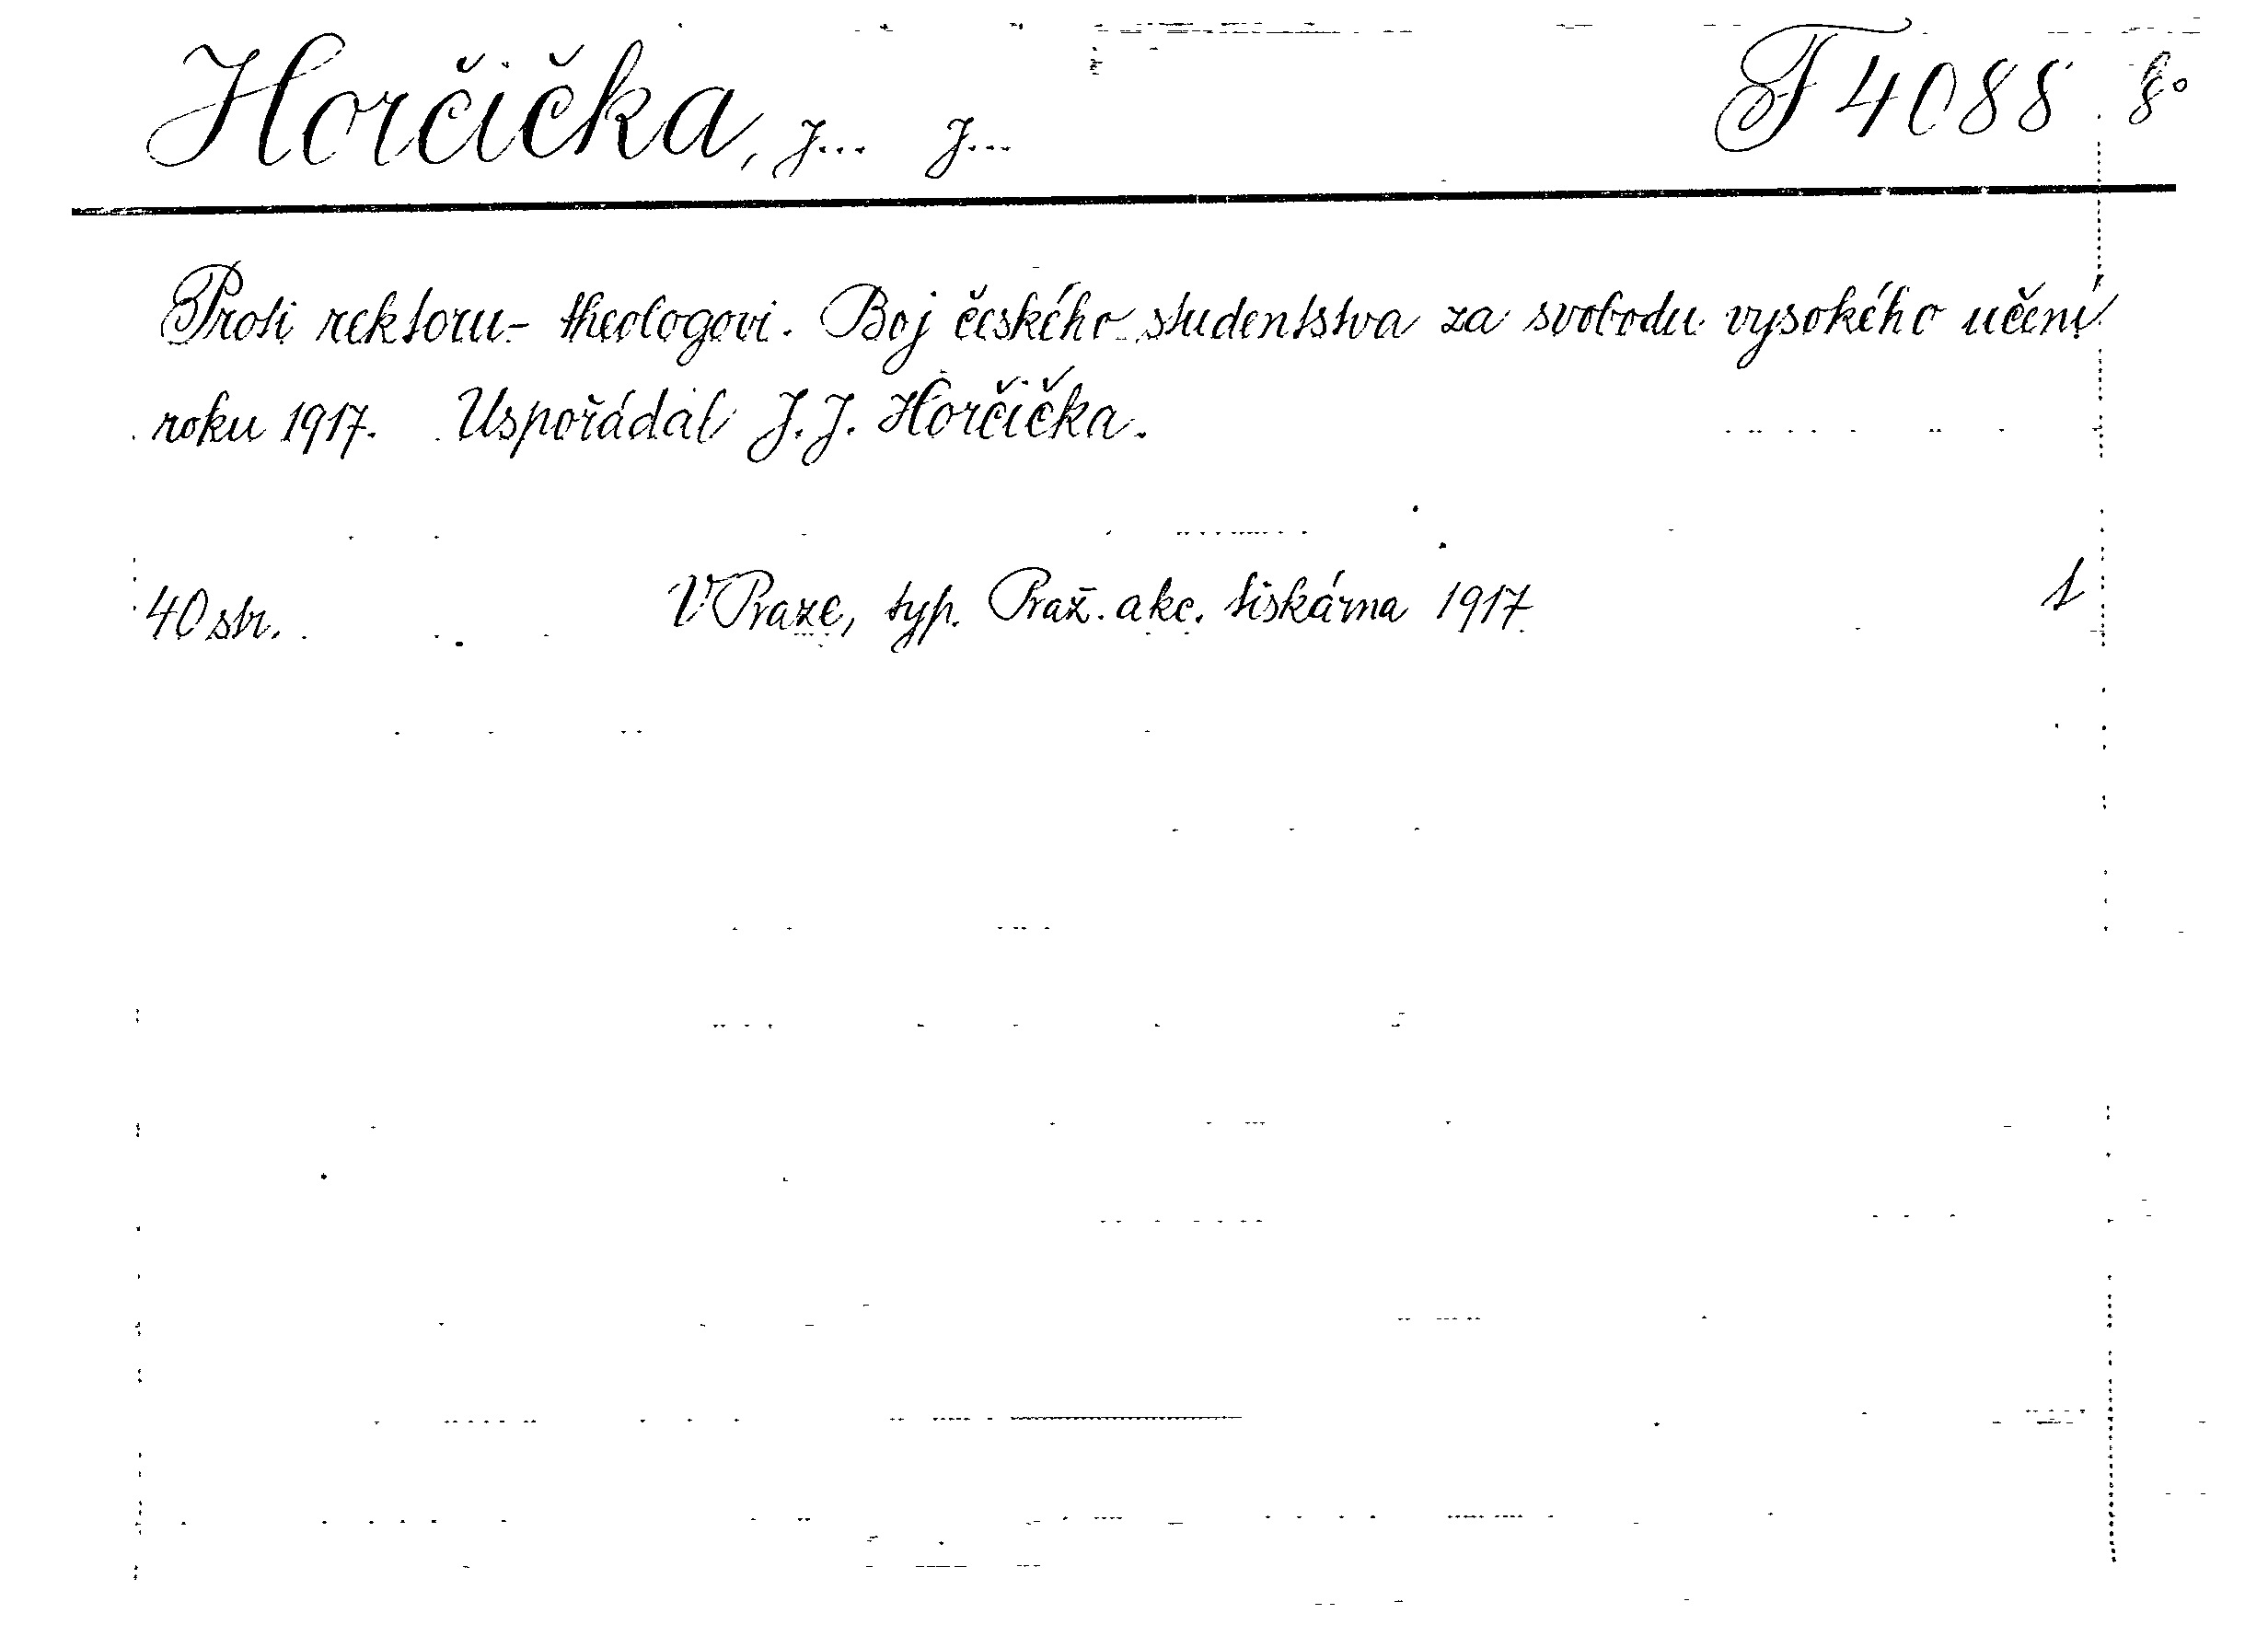 Horčička, J... J... F 4088 8°
Proti rektoru- theologovi. Boj českého studentstva za svobodu vysokého učení
roku 1917. Uspořádal J. J. Horčička.
40 str. V Praze, typ. Praž. akc. tiskárna 1917 1